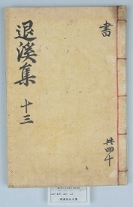 書
退溪集
十三
共四十